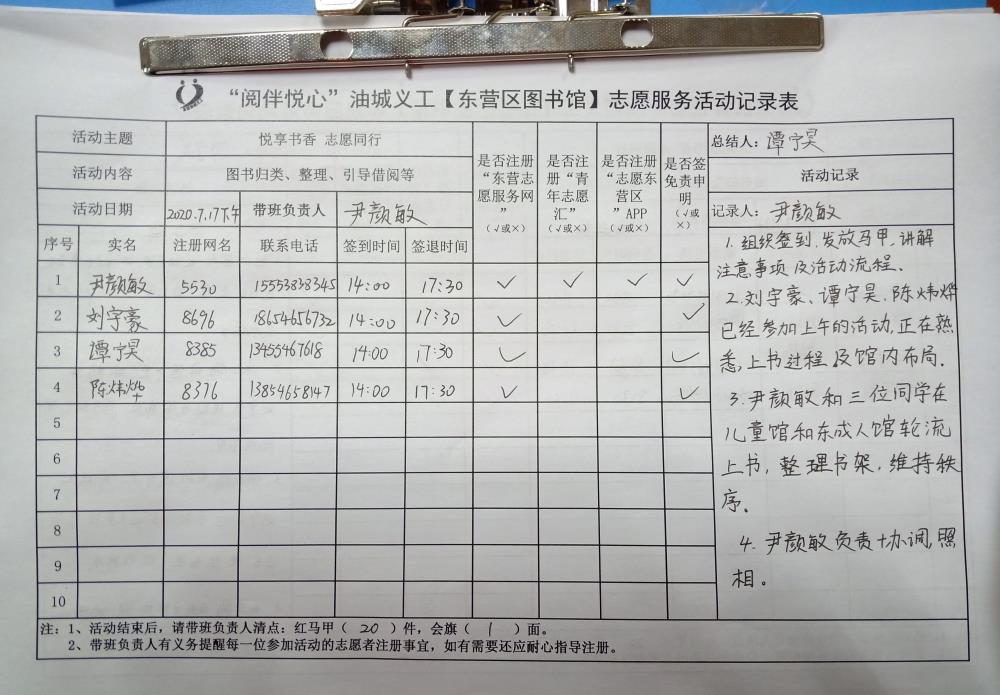 “阅伴悦心”油城义工【东营区图书馆】志愿服务活动记录表
活动主题 悦享书香 志愿同行
活动内容 图书归类、整理、引导借阅等
活动日期 2020.7.17下午 带班负责人 尹颜敏
是否注册“东营志愿服务网”（√或×）
是否注册“青年志愿汇”（√或×）
是否注册“志愿东营区”APP（√或×）
是否签免责申明（√或×）
总结人：谭宁昊
活动记录
记录人：尹颜敏
序号 实名 注册网名 联系电话 签到时间 签退时间
1 尹颜敏 5530 15553838345 14:00 17:30 ✓ ✓ ✓ ✓
2 刘宇豪 8696 18654656732 14:00 17:30 ✓ ✓
3 谭宁昊 8385 13455467618 14:00 17:30 ✓ ✓
4 陈炜烨 8376 13854658147 14:00 17:30 ✓ ✓
5
6
7
8
9
10
1. 组织签到,发放马甲,讲解
注意事项及活动流程.
2.刘宇豪、谭宁昊.陈炜烨
已经参加上午的活动,正在熟
悉,上书过程及馆内布局.
3.尹颜敏和三位同学在
儿童馆和东成人馆轮流
上书,整理书架,维持秩
序.
4.尹颜敏负责协调,照
相。
注：1、活动结束后，请带班负责人清点：红马甲（ 20 ）件，会旗（ 1 ）面。
2、带班负责人有义务提醒每一位参加活动的志愿者注册事宜，如有需要还应耐心指导注册。